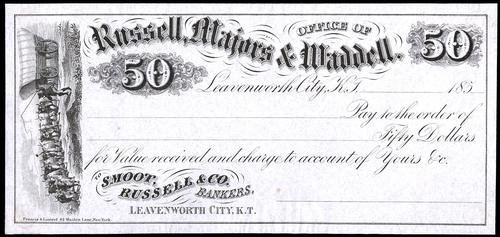 OFFICE OF
Russell, Majors & Waddell.
50
50
Leavenworth City, K.T. 185
Pay to the order of
Fifty Dollars
for Value received and charge to account of Yours &c.
TO SMOOT, RUSSELL & CO. BANKERS,
LEAVENWORTH CITY, K.T.